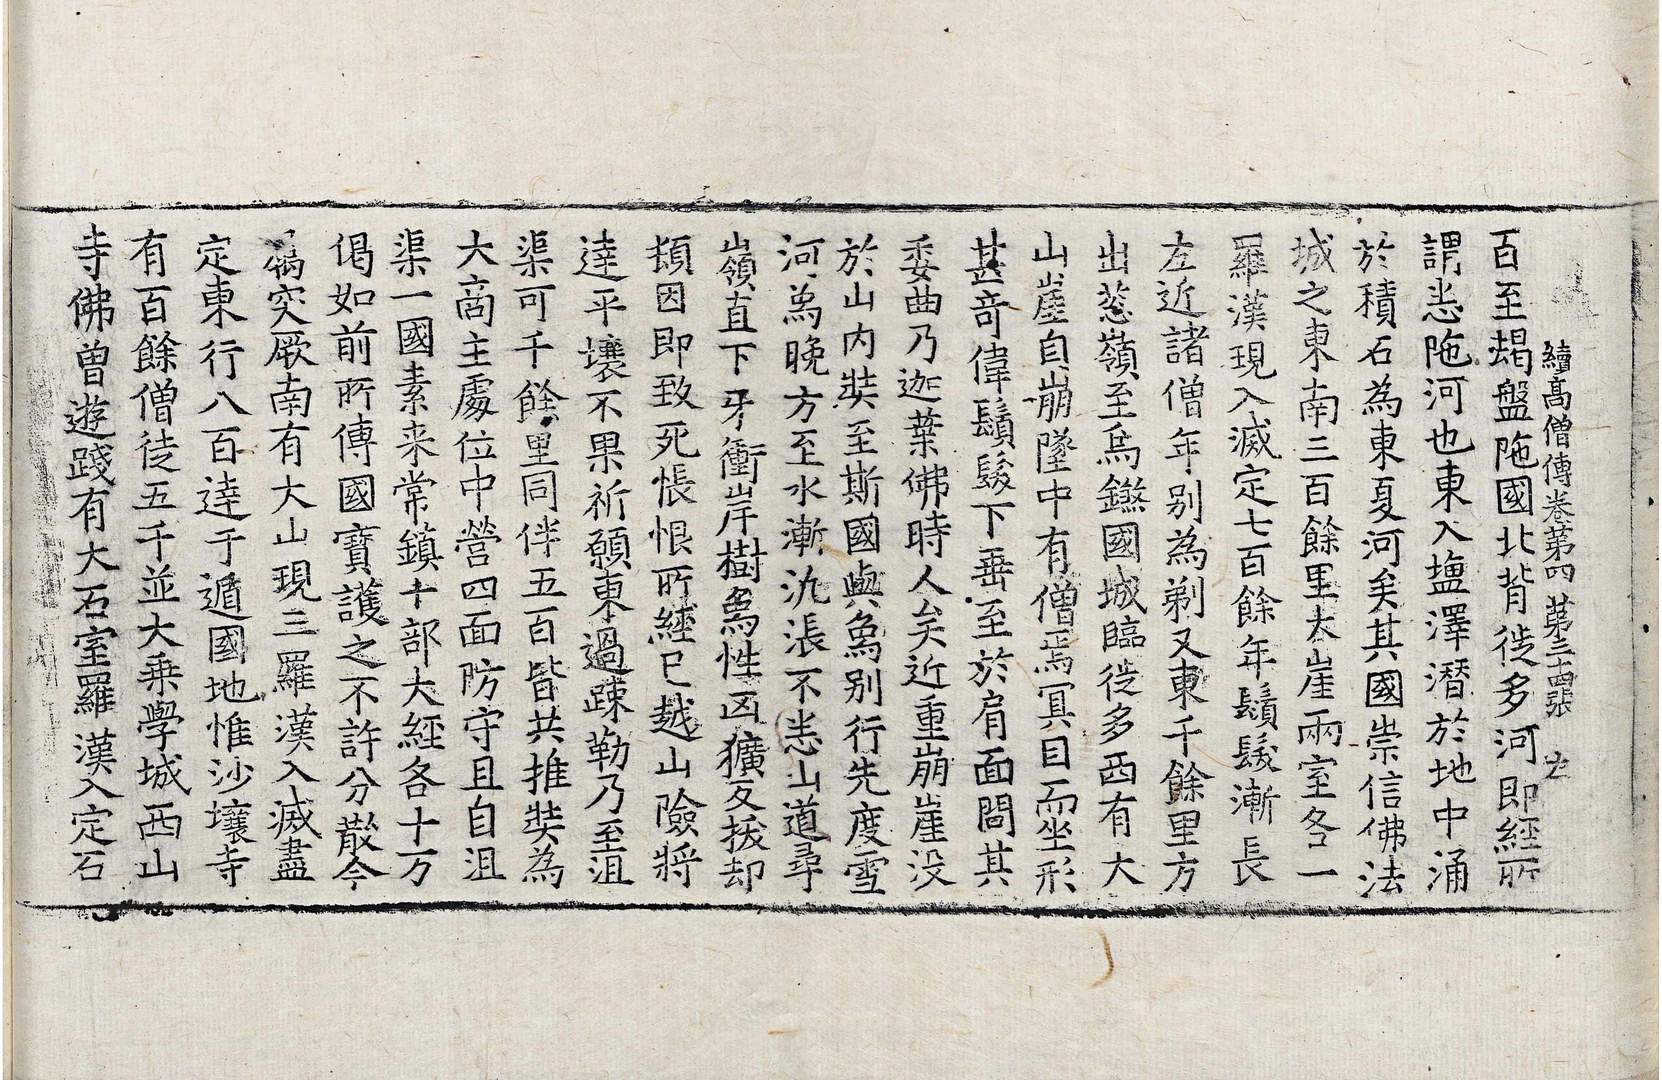 續高僧傳卷第四 第三十四張 左
百至朅盤陁國北背徙多河即經所
謂恙陁河也東入塩澤潜於地中涌
於積石為東夏河矣其國崇信佛法
城之東南三百餘里大崖兩室各一
羅漢現入滅定七百餘年鬚髮漸長
左近諸僧年别為剃又東千餘里方
出葱嶺至烏鎩國城臨徙多西有大
山崖自崩墜中有僧焉冥目而坐形
甚竒偉鬚髮下垂至於肩面問其
委曲乃迦葉佛時人矣近重崩崖没
於山内奘至斯國與象别行先度雪
河象晚方至水漸汎漲不悉山道尋
嶺直下牙衝岸樹象性凶獷反拔却
頓因即致死悵恨所經已越山險將
達平壤不果祈願東過踈勒乃至沮
渠可千餘里同伴五百皆共推奘為
大商主處位中營四面防守且自沮
渠一國素来常鎮十部大經各十万
偈如前所傳國寶護之不許分散今
屬突厥南有大山現三羅漢入滅盡
定東行八百達于遁國地惟沙壤寺
有百餘僧徒五千並大乗學城西山
寺佛曽遊踐有大石室羅漢入定石